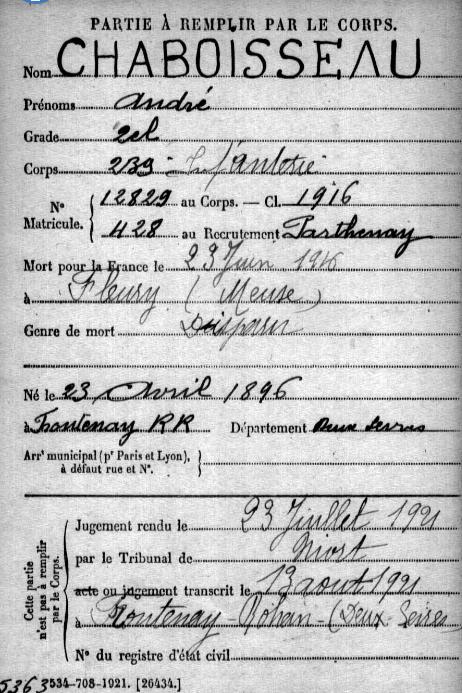 PARTIE À REMPLIR PAR LE CORPS.
Nom CHABOISSEAU
Prénoms André
Grade 2cl
Corps 239 Infanterie
N° Matricule. { 12829 au Corps. — Cl. 1916
428 au Recrutement Parthenay
Mort pour la France le 23 Juin 1916
à Fleury (Meuse)
Genre de mort Disparu
Né le 23 Avril 1896
à Frontenay RR Département Deux Sevres
Arrᵗ municipal (pʳ Paris et Lyon),
à défaut rue et N°.
Cette partie n'est pas à remplir par le Corps.
Jugement rendu le 23 Juillet 1921
par le Tribunal de Niort
acte ou jugement transcrit le 13 aout 1921
à Frontenay-Rohan-(Deux Sevres
N° du registre d'état civil
5363 534-708-1921. [26434.]